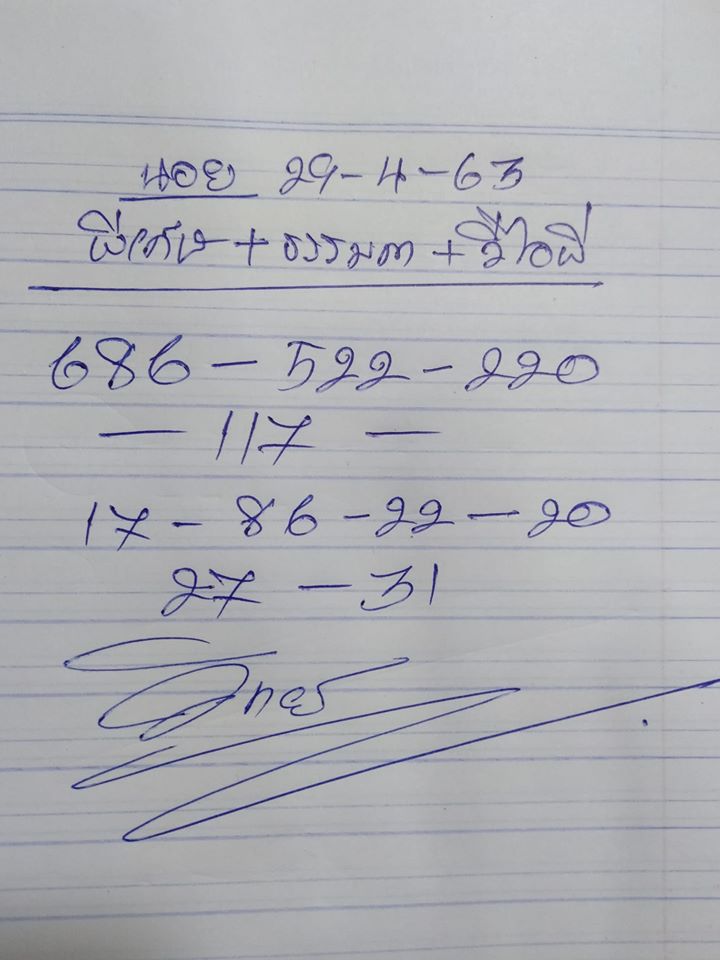 นอย 29-4-63
พิเศษ + ธรรมดา + วีไอพี
686 - 522 - 220
- 117 -
17 - 86 - 22 - 20
27 - 31